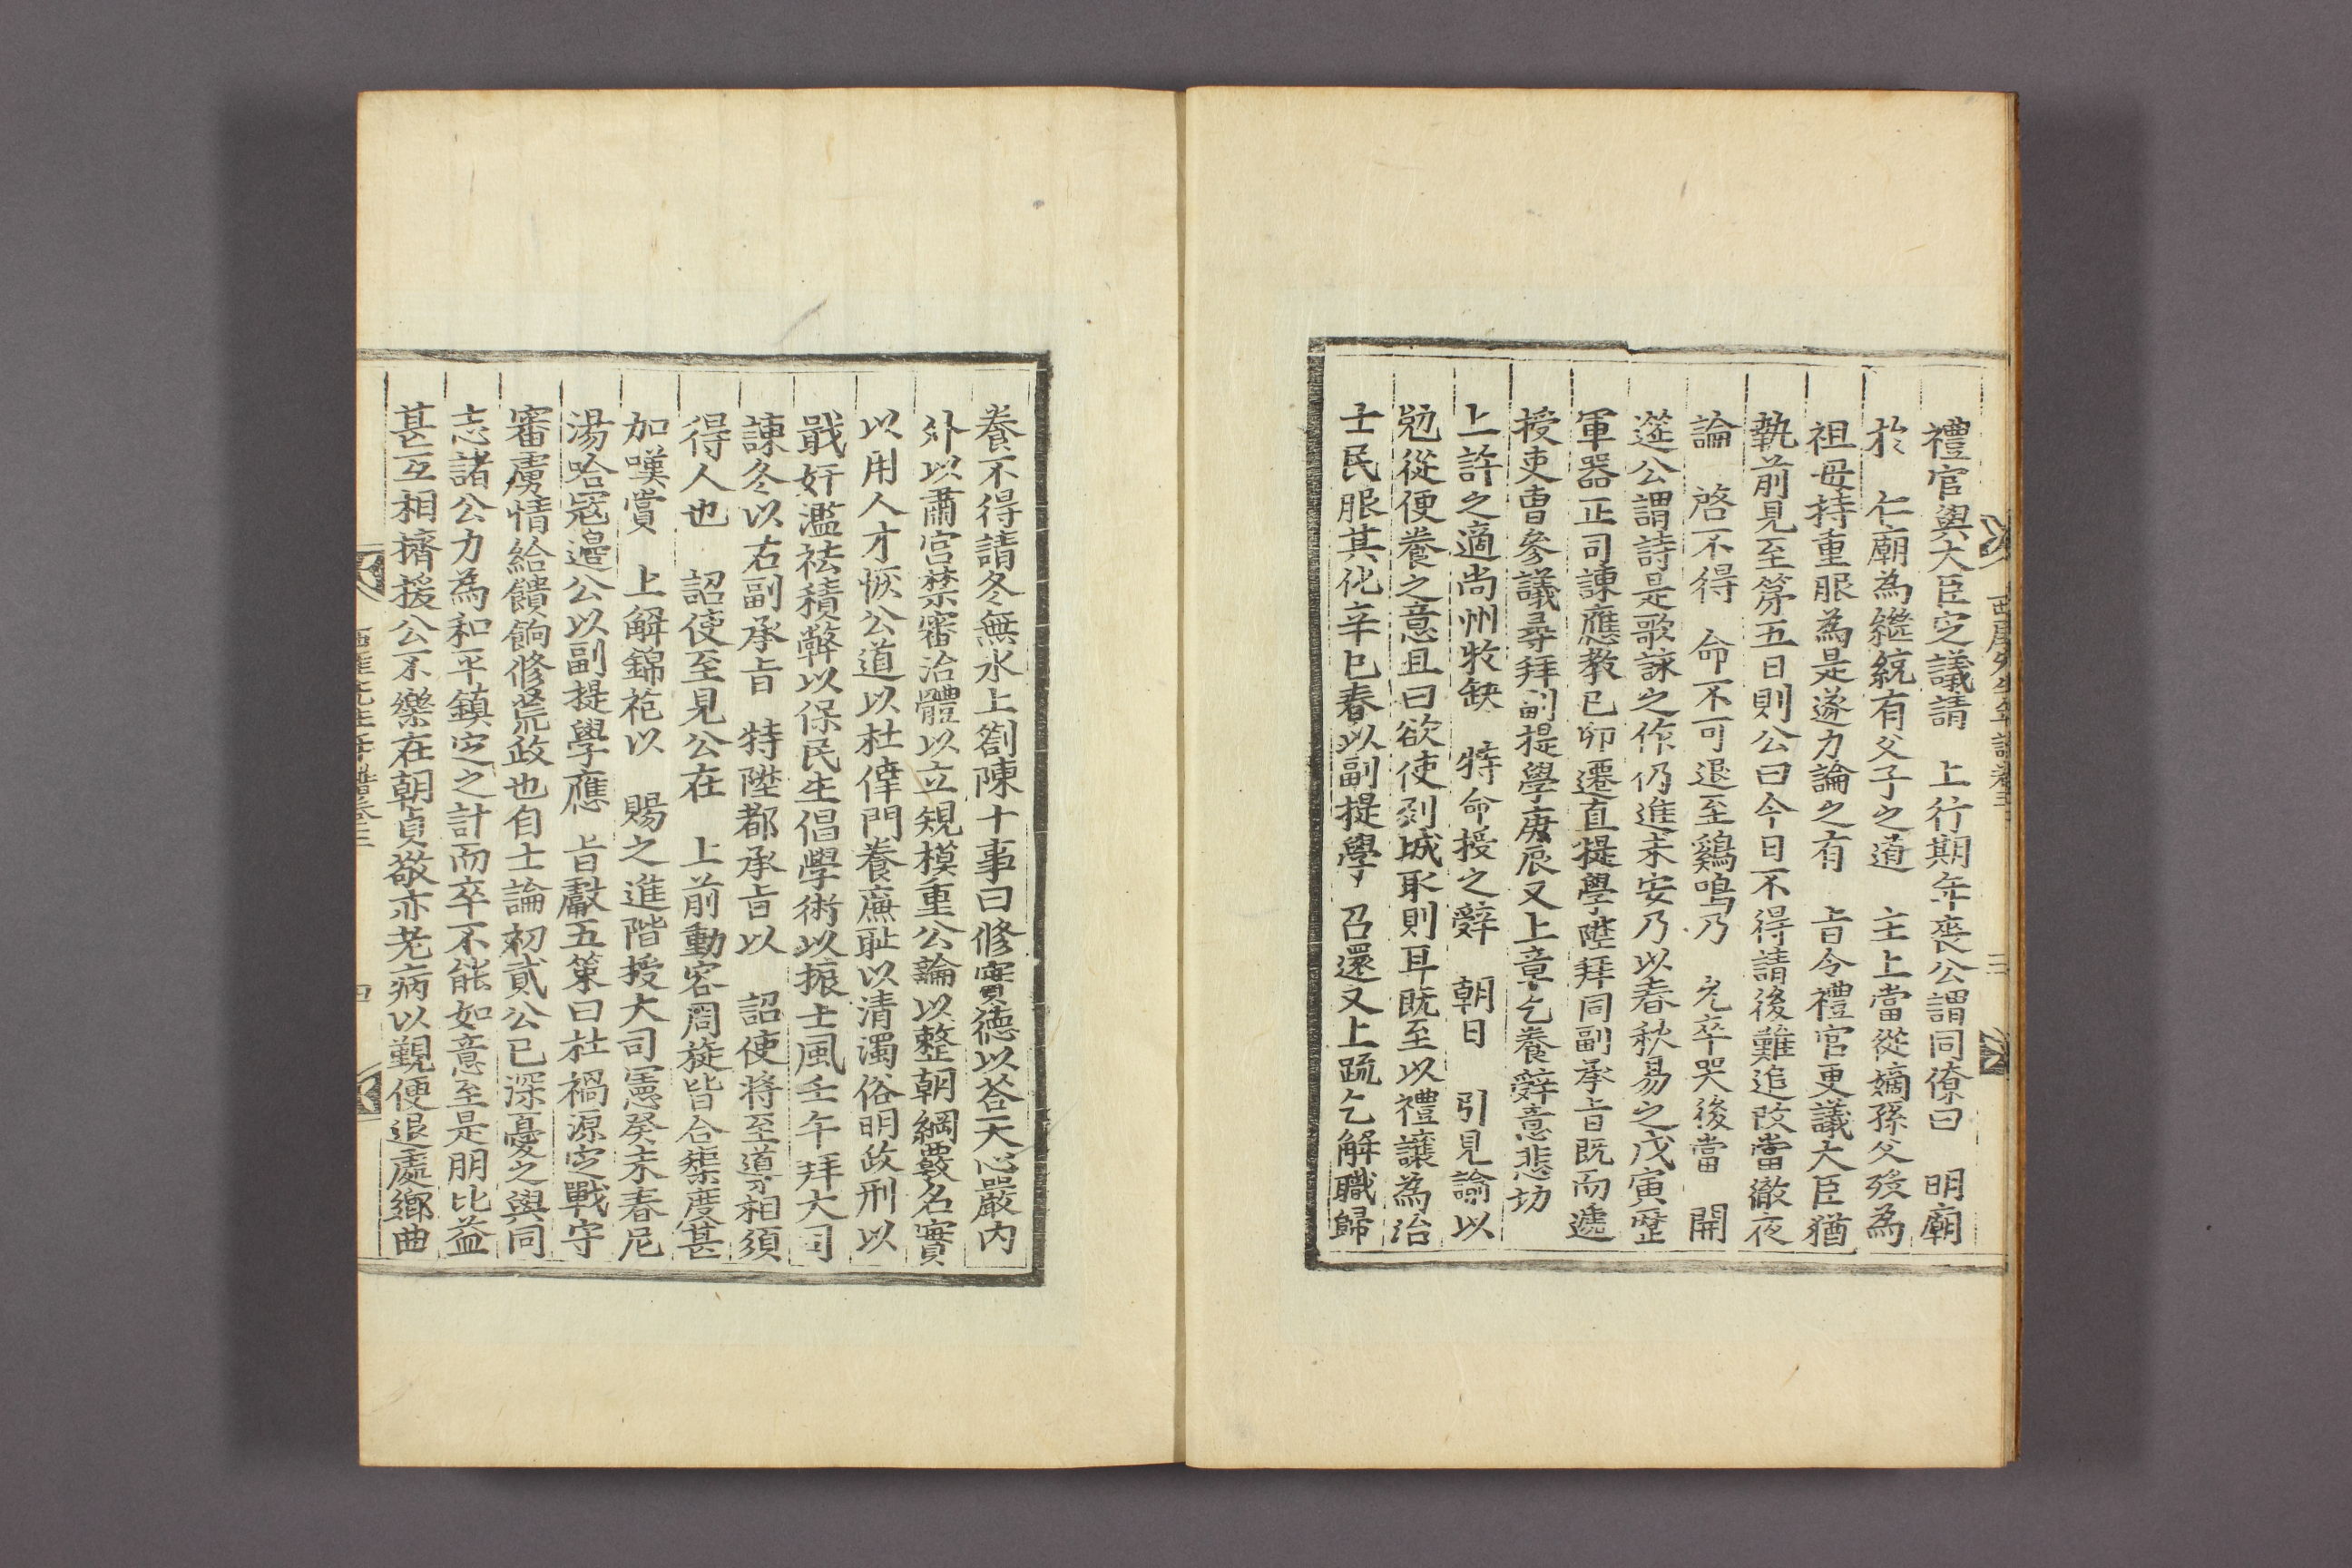 禮官與大臣㝎議請 上行期年喪公謂同僚曰 明廟
於 仁廟為繼統有父子之道 主上當從嫡孫父歿為
祖母持重服為是遂力論之有 旨令禮官更議大臣猶
執前見至第五日則公曰今日不得請後難追改當徹夜
論 啓不得 命不可退至鷄鳴乃 允卒哭後當 開
筵公謂詩是歌詠之作仍進未安乃以春秋易之戊寅歷
軍器正司諫應教己卯遷直提學陞拜同副承旨既而遞
授吏曹參議尋拜副提學庚辰又上章乞養辭意悲切
上許之適尚州牧缺 特命授之辭 朝日 引見諭以
勉從便養之意且曰欲使列城取則耳既至以禮讓為治
士民服其化辛巳春以副提學 召還又上疏乞解職歸
養不得請冬無氷上劄陳十事曰修實德以荅天心嚴內
外以肅宮禁審治體以立規模重公論以整朝綱覈名實
以用人才恢公道以杜倖門養廉恥以清濁俗明政刑以
戢奸濫祛積弊以保民生倡學術以振士風壬午拜大司
諫冬以右副承旨 特陞都承旨以 詔使將至導相須
得人也 詔使至見公在 上前動容周旋皆合榘度甚
加嘆賞 上解錦袍以 賜之進階授大司憲癸未春尼
湯哈寇邊公以副提學應 旨獻五策曰杜禍源㝎戰守
審虜情給饋餉修荒政也自士論初貳公已深憂之與同
志諸公力為和平鎮㝎之計而卒不能如意至是朋比益
甚互相擠援公不樂在朝貞敬亦老病以覲便退處鄉曲
西厓先生年譜卷三 三
西厓先生年譜卷三 四